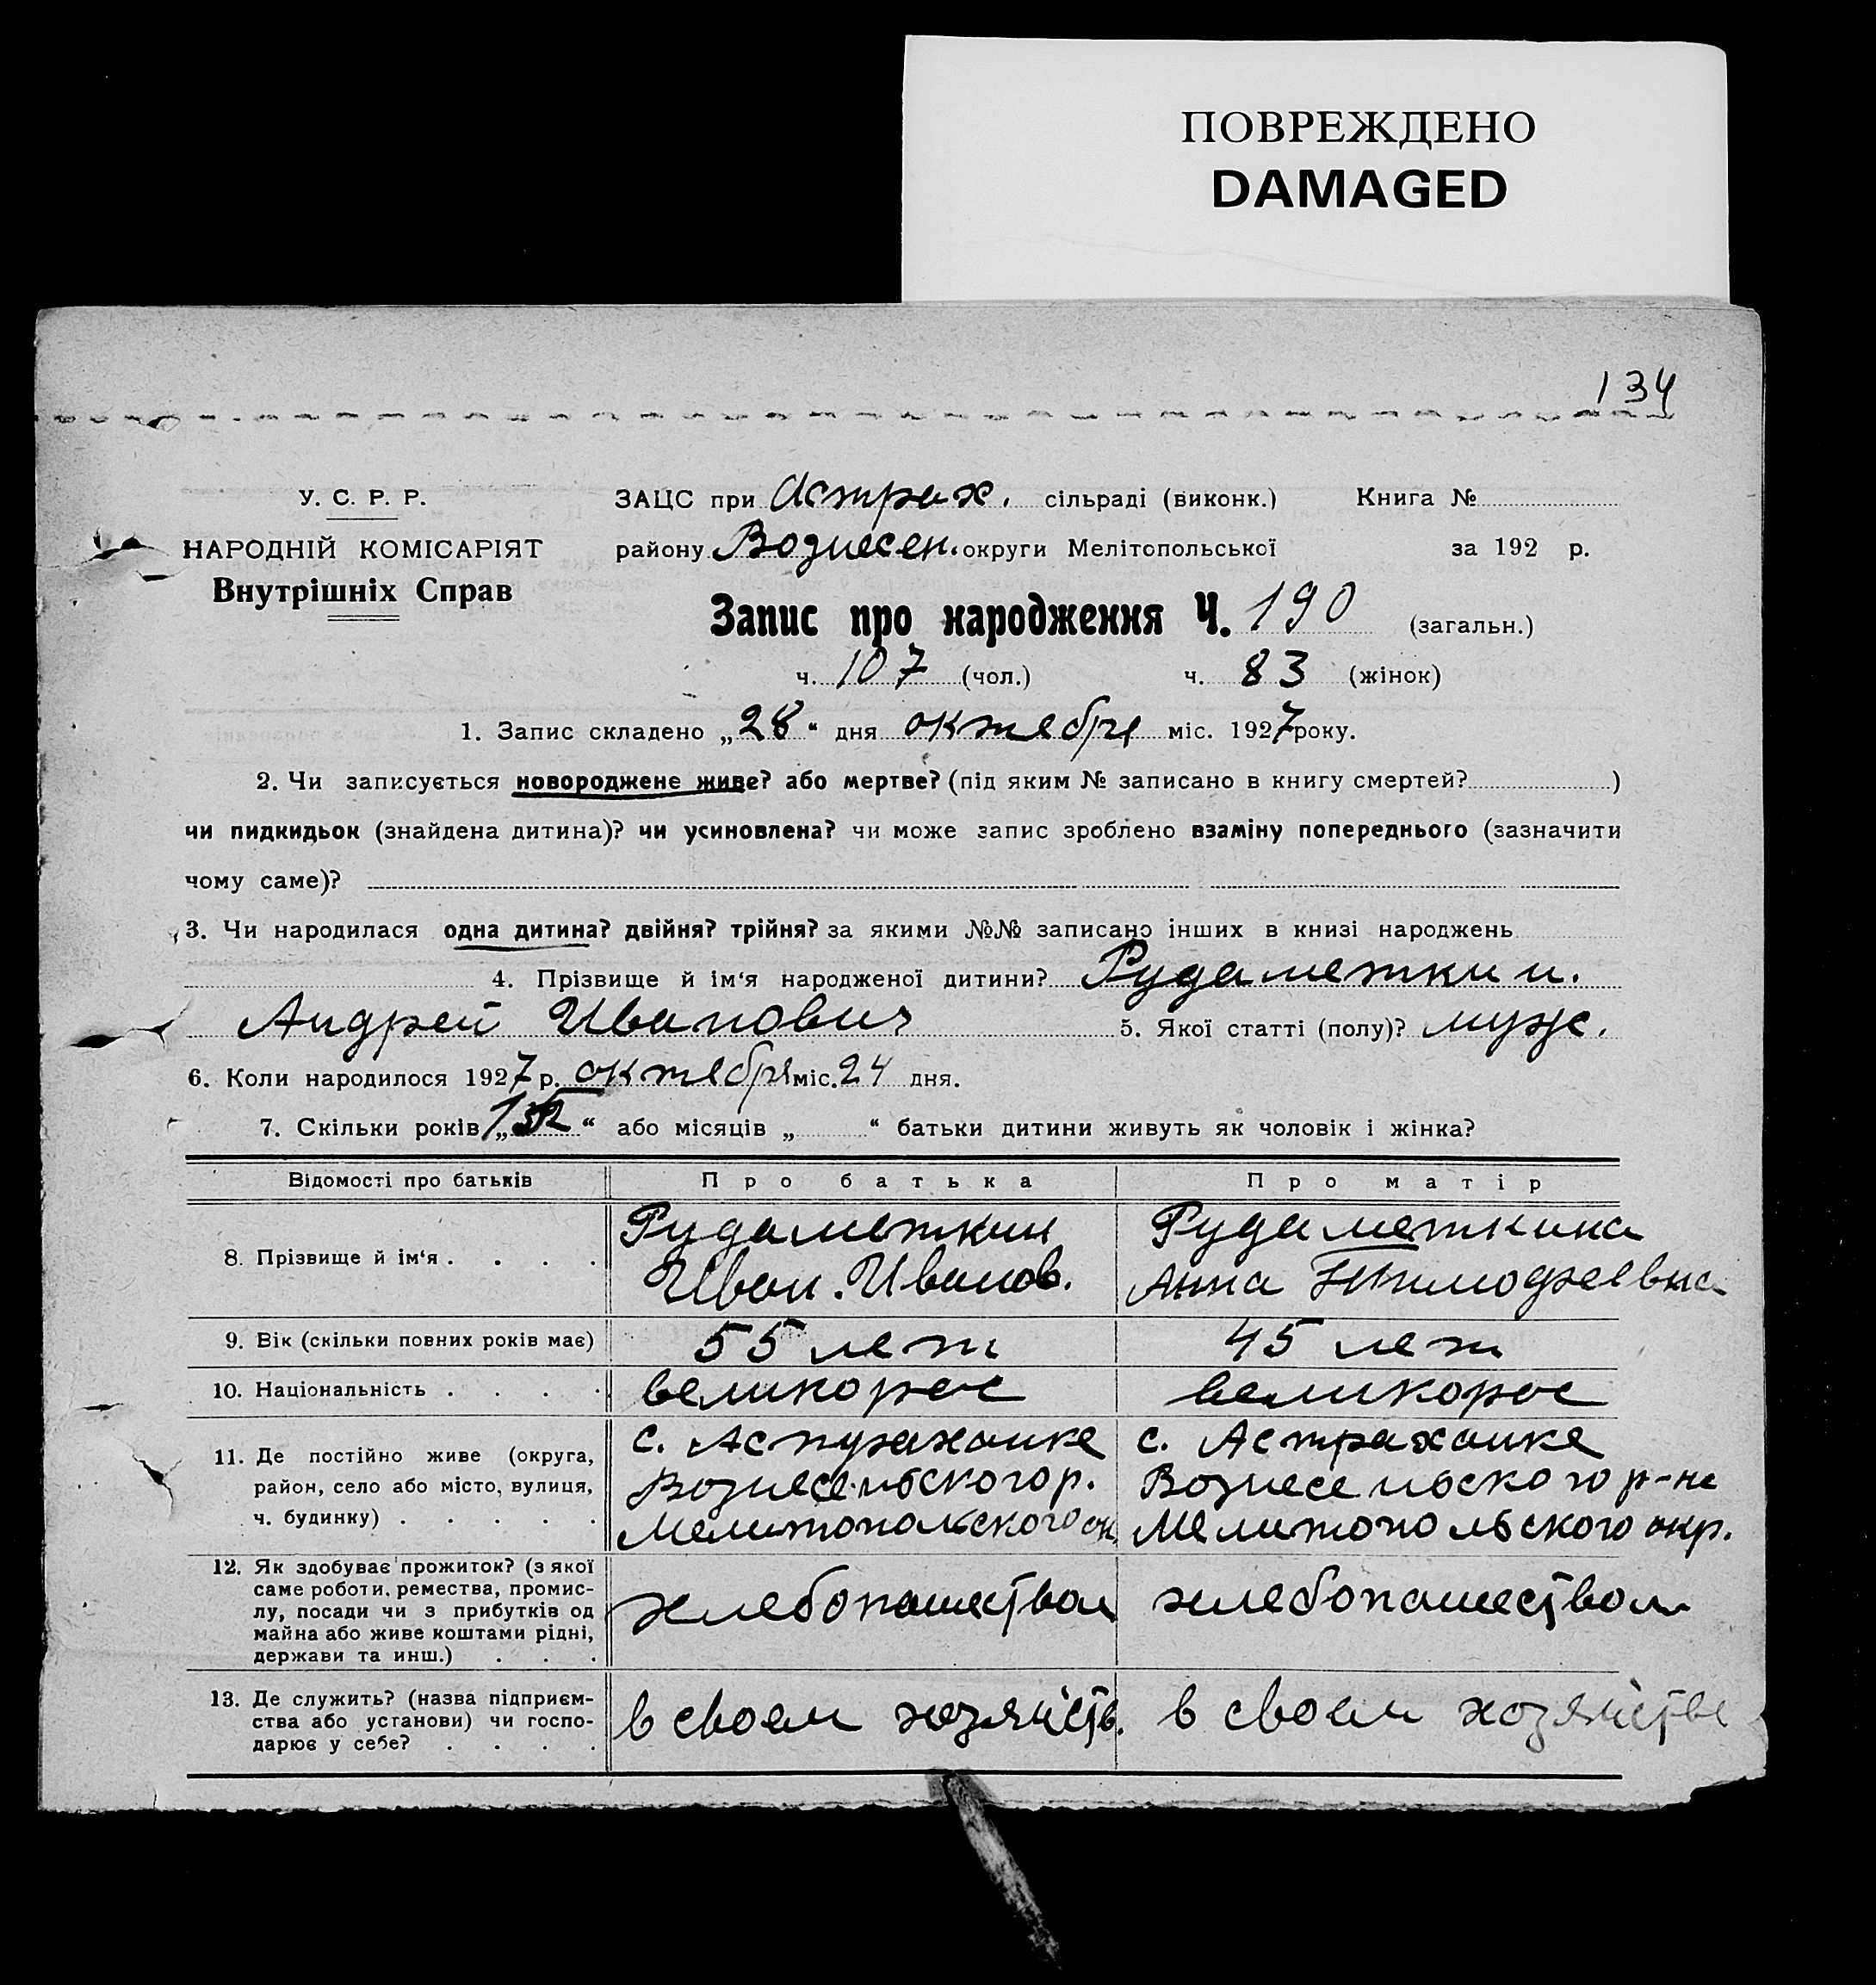 ПОВРЕЖДЕНО
DAMAGED
134
У. С. Р. Р.
НАРОДНІЙ КОМІСАРІЯТ
Внутрішніх Справ
ЗАЦС при Астрах. сільраді (виконк.) Книга №
району Вознесен. округи Мелітопольської за 192 р.
Запис про народження Ч. 190 (загальн.)
ч. 107 (чол.) ч. 83 (жінок)
1. Запис складено „28“ дня октебря міс. 1927 року.
2. Чи записується новороджене живе? або мертве? (під яким № записано в книгу смертей? )
чи пидкидьок (знайдена дитина)? чи усиновлена? чи може запис зроблено взаміну попереднього (зазначити
чому саме)?
3. Чи народилася одна дитина? двійня? трійня? за якими №№ записано інших в книзі народжень
4. Прізвище й ім‘я народженої дитини? Рудаметкин.
Андрей Иванович 5. Якої статті (полу)? муж.
6. Коли народилося 1927 р. октебря міс. 24 дня.
7. Скільки років „ “ або місяців „ “ батьки дитини живуть як чоловік і жінка?
Відомості про батьків Про батька Про матір
8. Прізвище й ім‘я . . . . Рудаметкин Рудаметкина
Иван. Иванов. Анна
9. Вік (скільки повних років має) 55 лет 45 лет
10. Національність . . . . великорос великорос
11. Де постійно живе (округа, район, село або місто, вулиця, ч. будинку) . . . . .
с. Астраханке с. Астраханке
Вознесеньского р. Вознесеньского р-на
Мелитопольского ок. Мелитопольского окр.
12. Як здобуває прожиток? (з якої
саме роботи, ремества, промис-
лу, посади чи з прибутків од
майна або живе коштами рідні,
держави та инш.) . . .
хлебопашеством хлебопашеством
13. Де служить? (назва підприєм-
ства або установи) чи госпо-
дарює у себе? . . . .
в своем хозяйств. в своем хозяйстве